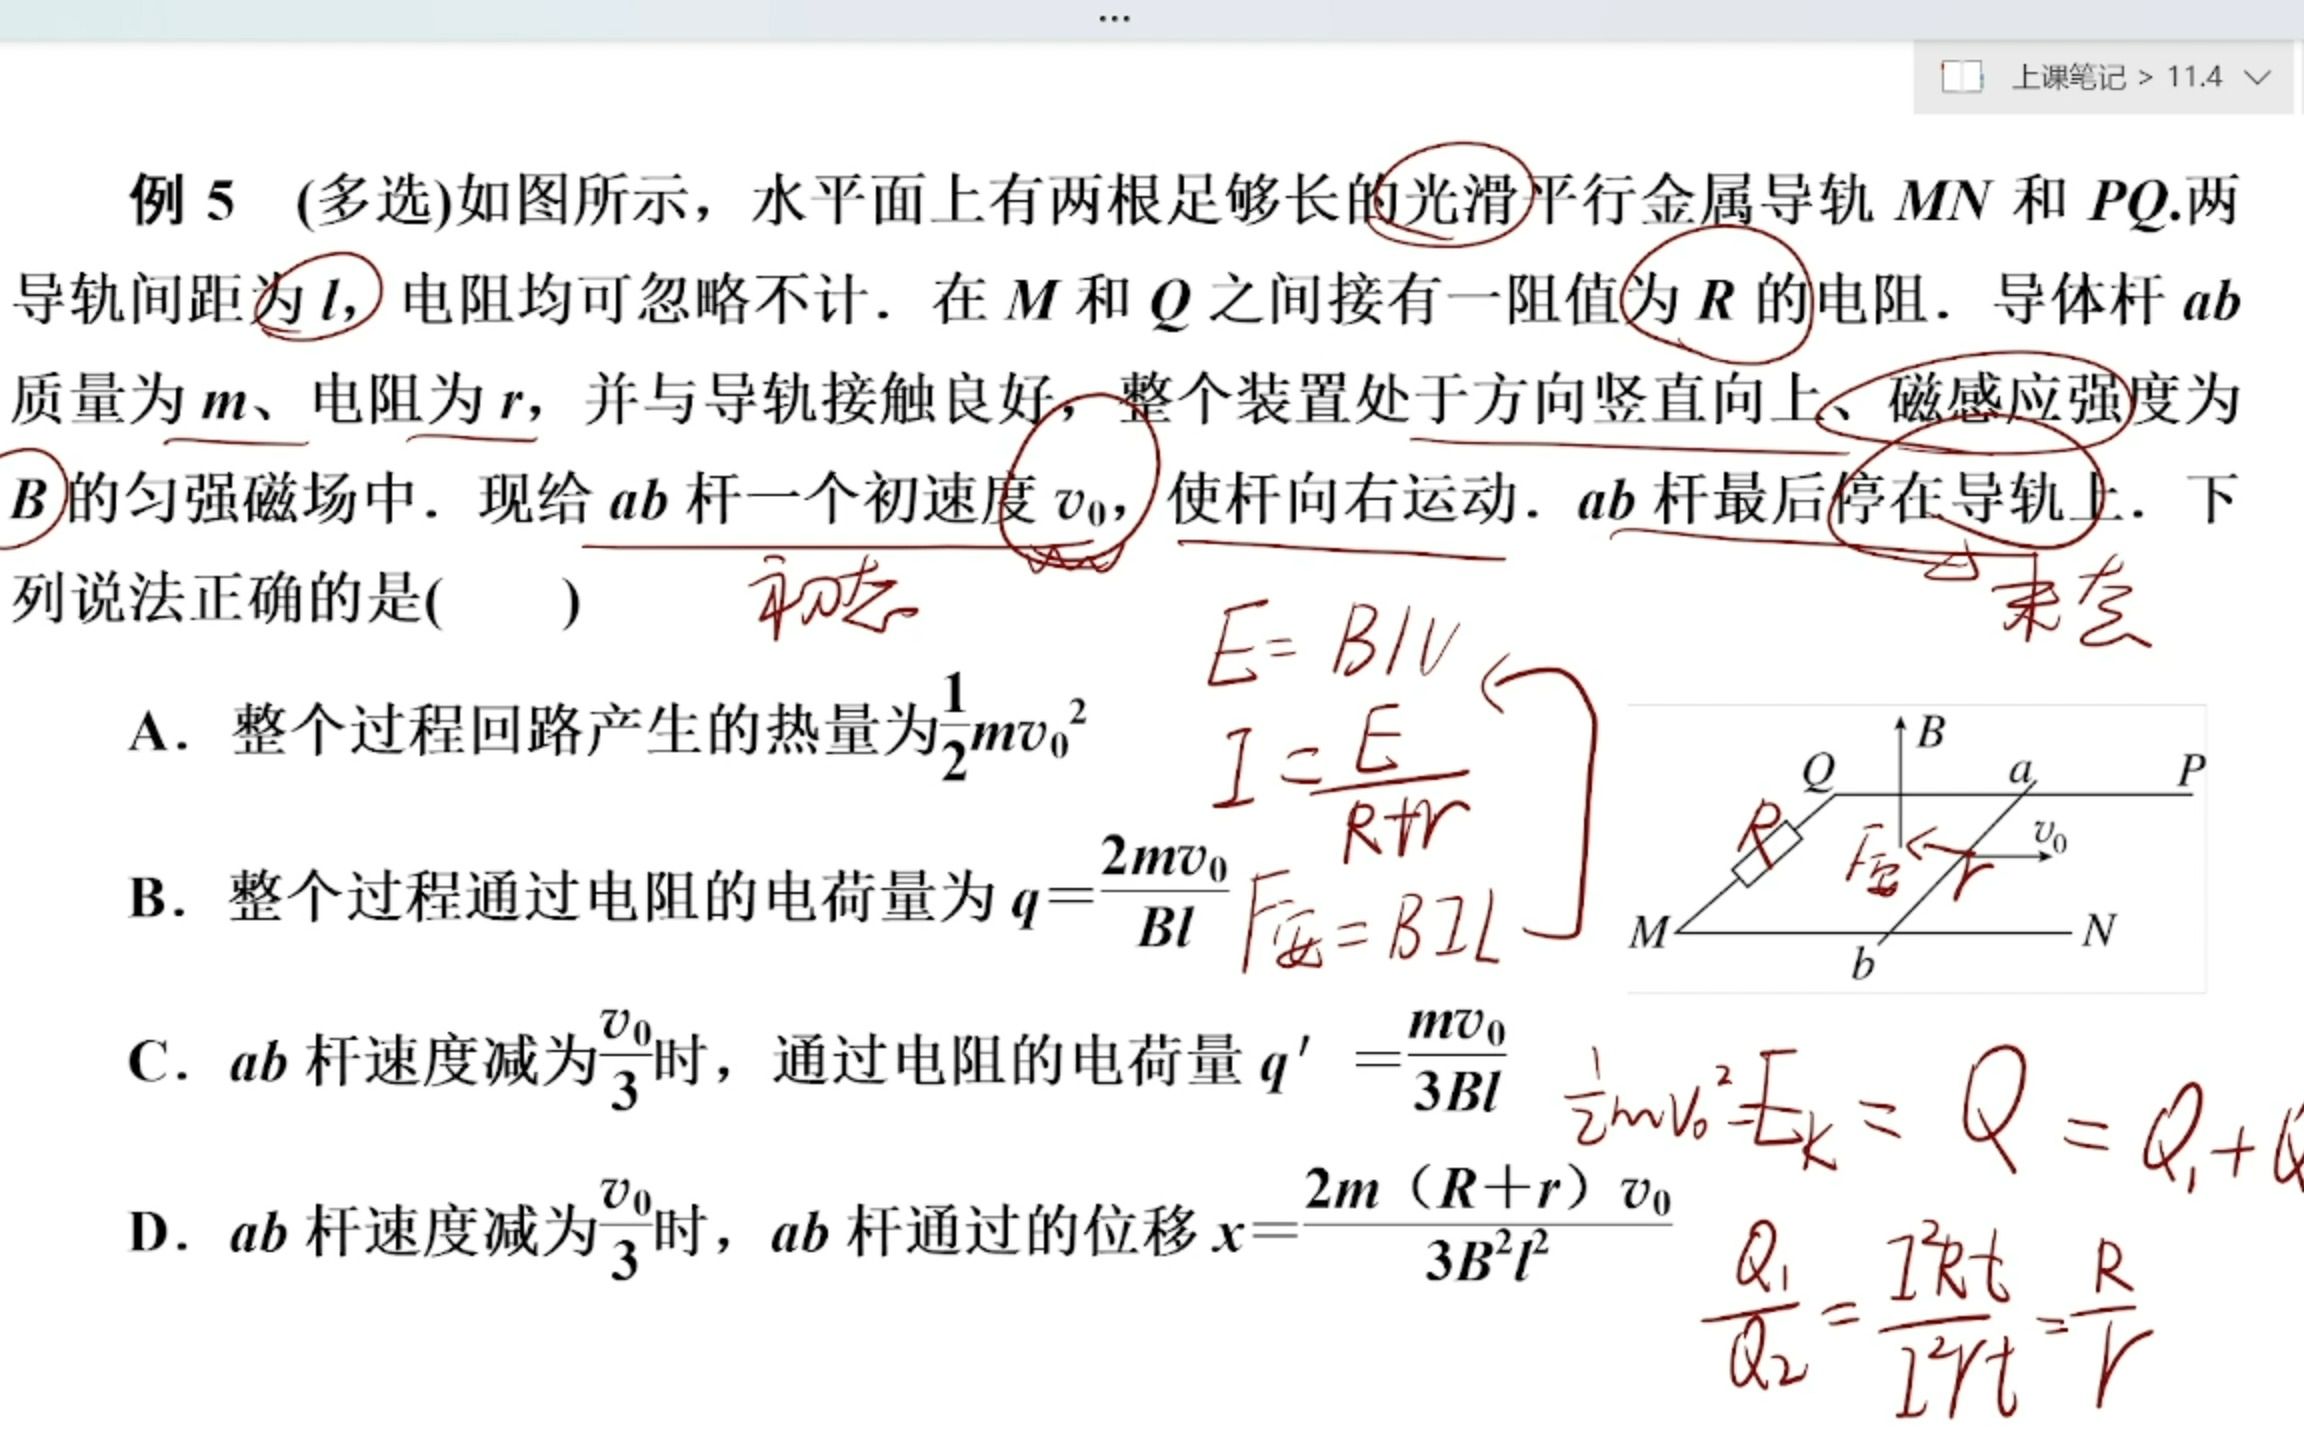 ...
上课笔记 > 11.4
例 5 (多选)如图所示，水平面上有两根足够长的光滑平行金属导轨 MN 和 PQ.两
导轨间距为 l，电阻均可忽略不计．在 M 和 Q 之间接有一阻值为 R 的电阻．导体杆 ab
质量为 m、电阻为 r，并与导轨接触良好，整个装置处于方向竖直向上、磁感应强度为
B 的匀强磁场中．现给 ab 杆一个初速度 v₀，使杆向右运动．ab 杆最后停在导轨上．下
列说法正确的是(    )
初态
末态
A．整个过程回路产生的热量为1/2mv₀²
B．整个过程通过电阻的电荷量为 q=2mv₀/Bl
C．ab 杆速度减为v₀/3时，通过电阻的电荷量 q′=mv₀/3Bl
D．ab 杆速度减为v₀/3时，ab 杆通过的位移 x=2m（R+r）v₀/3B²l²
E=Blv
I=E/R+r
F安=BIL
B
Q
a
P
R
F安
r
v₀
M
b
N
1/2mv₀²=Eₖ=Q=Q₁+Q
Q₁/Q₂=I²Rt/I²rt=R/r